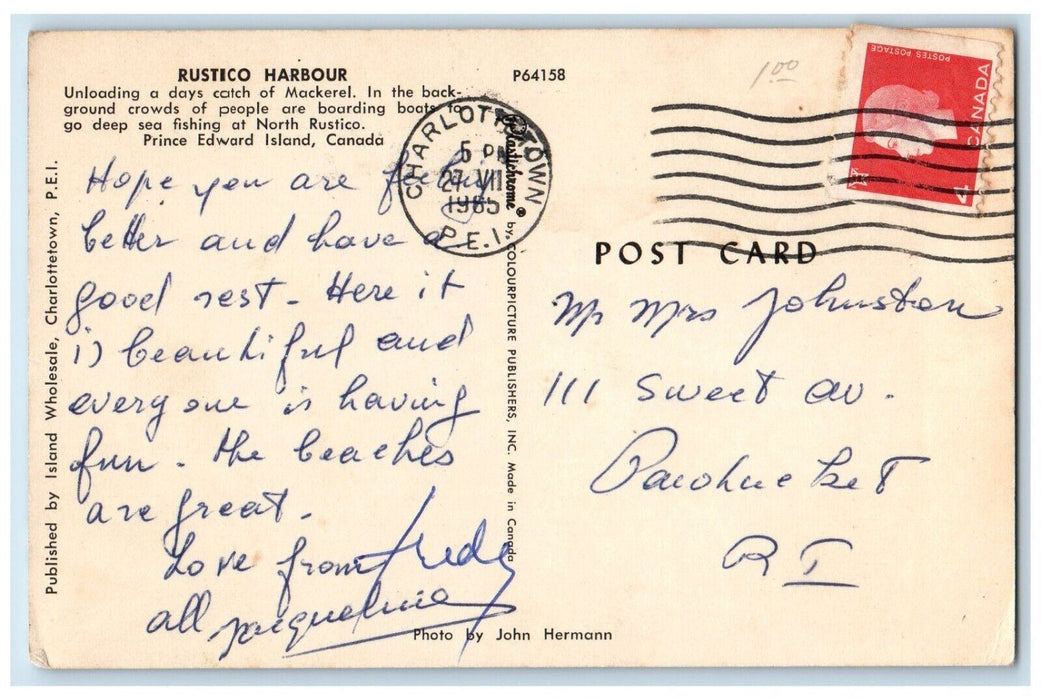 RUSTICO HARBOUR
Unloading a days catch of Mackerel. In the back-
ground crowds of people are boarding boats to
go deep sea fishing at North Rustico.
Prince Edward Island, Canada
P64158
1.00
POSTES POSTAGE
CANADA
4
CHARLOTTETOWN
5 PM
27 VII
1965
P.E.I.
Plastichrome® by COLOURPICTURE PUBLISHERS, INC. Made in Canada
Published by Island Wholesale, Charlottetown, P.E.I.
POST CARD
Hope you are feeling
better and have a
good rest - Here it
is beautiful and
everyone is having
fun - the beaches
are great.
Love from
all Jacqueline
Mr Mrs Johnston
111 Sweet av.
Pawtucket
R I
Photo by John Hermann